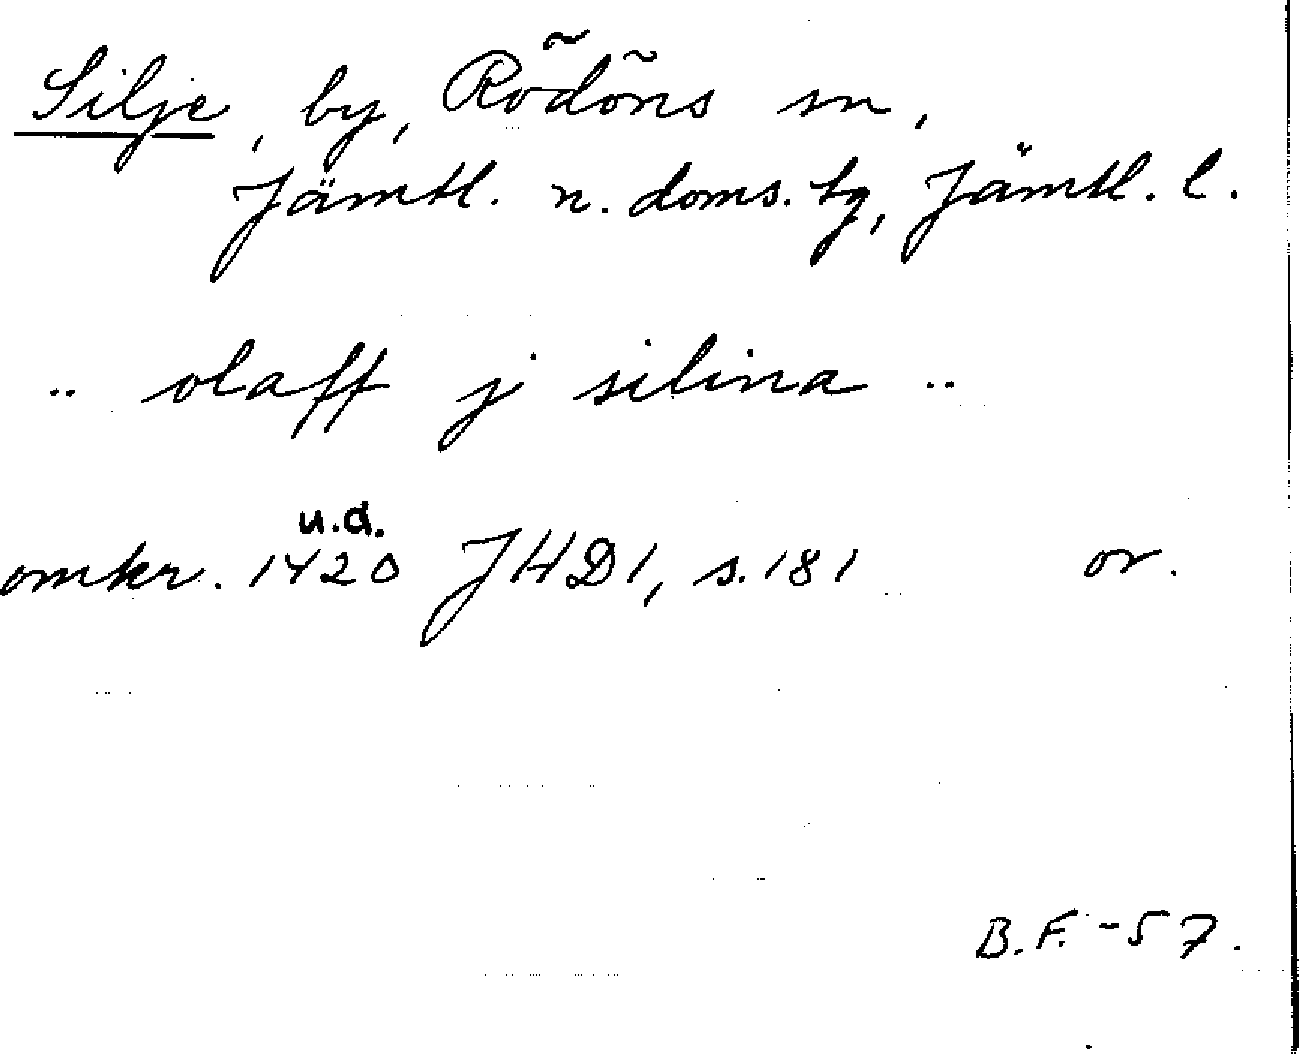 Silje, by, Rödöns sn,
Jämtl. n. doms. tg, Jämtl. l.
.. olaff j silina ..
u.d.
omkr. 1420 JHD1, s. 181 or.
B.F. -57.